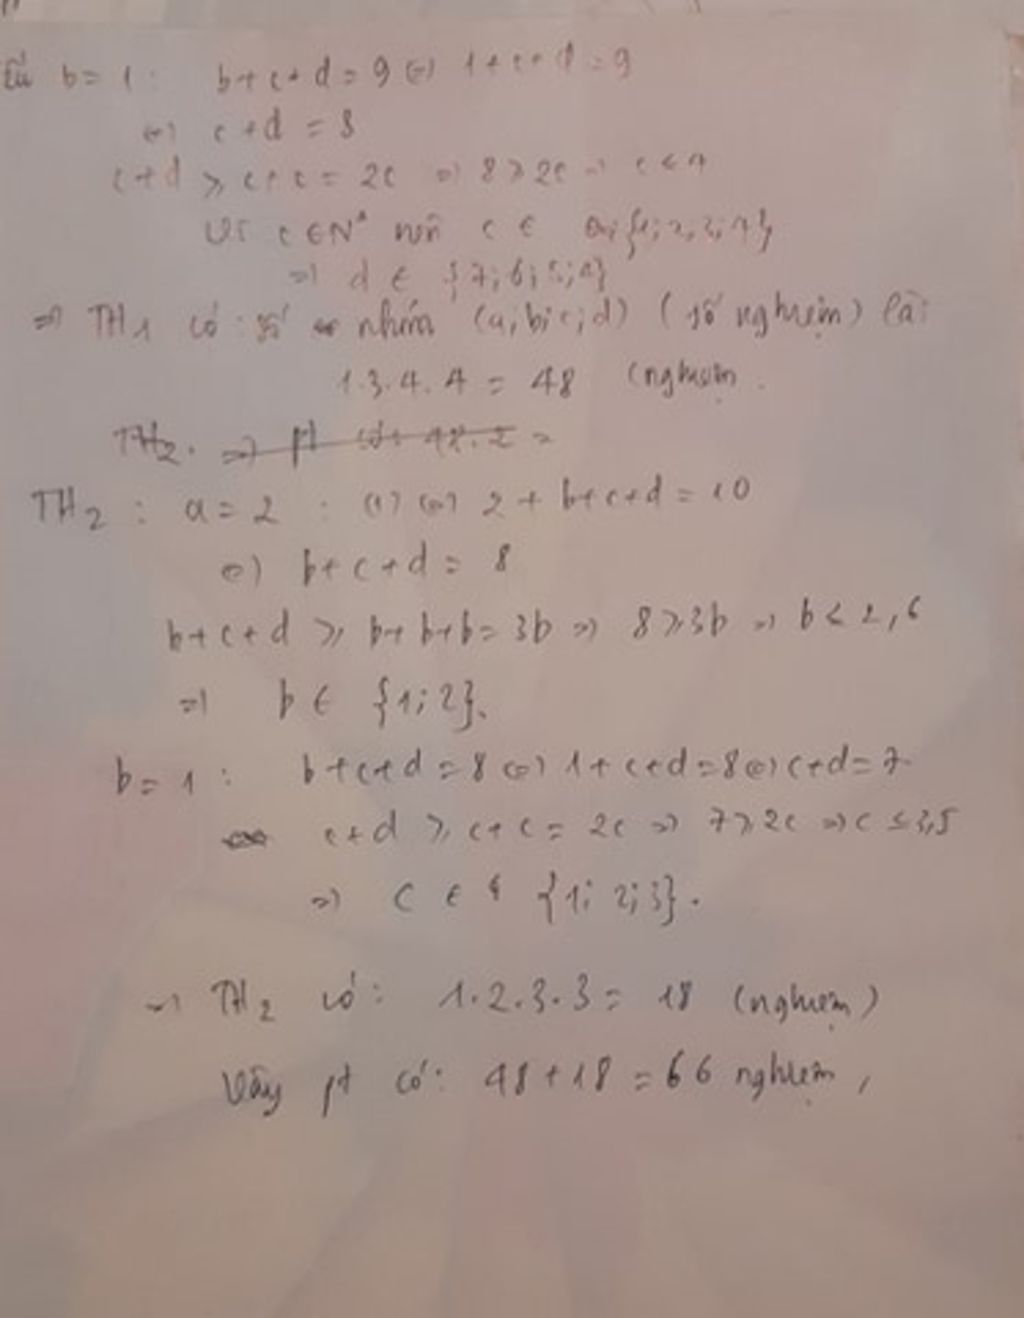 b = 1 : b + c + d = 9 ⇔ 1 + c + d = 9
⇔ c + d = 8
c + d ≥ c + c = 2c ⇒ 8 ≥ 2c ⇒ c < 4
Vì c ∈ N* nên c ∈ {1; 2; 3; 4}
⇒ d ∈ {7; 6; 5; 4}
⇒ TH1 có : số nhóm (a; b; c; d) (số nghiệm) là:
1.3.4.4 = 48 (nghiệm
TH2. ⇒ pt
TH2 : a = 2 : (1) ⇔ 2 + b + c + d = 10
⇔ b + c + d = 8
b + c + d ≥ b + b + b = 3b ⇒ 8 ≥ 3b ⇒ b < 2,6
⇒ b ∈ {1; 2}.
b = 1 : b + c + d = 8 ⇔ 1 + c + d = 8 ⇔ c + d = 7
c + d ≥ c + c = 2c ⇒ 7 ≥ 2c ⇒ c ≤ 3,5
⇒ C ∈ {1; 2; 3}.
⇒ TH2 có : 1.2.3.3 = 18 (nghiệm)
Vậy pt có : 48 + 18 = 66 nghiệm,